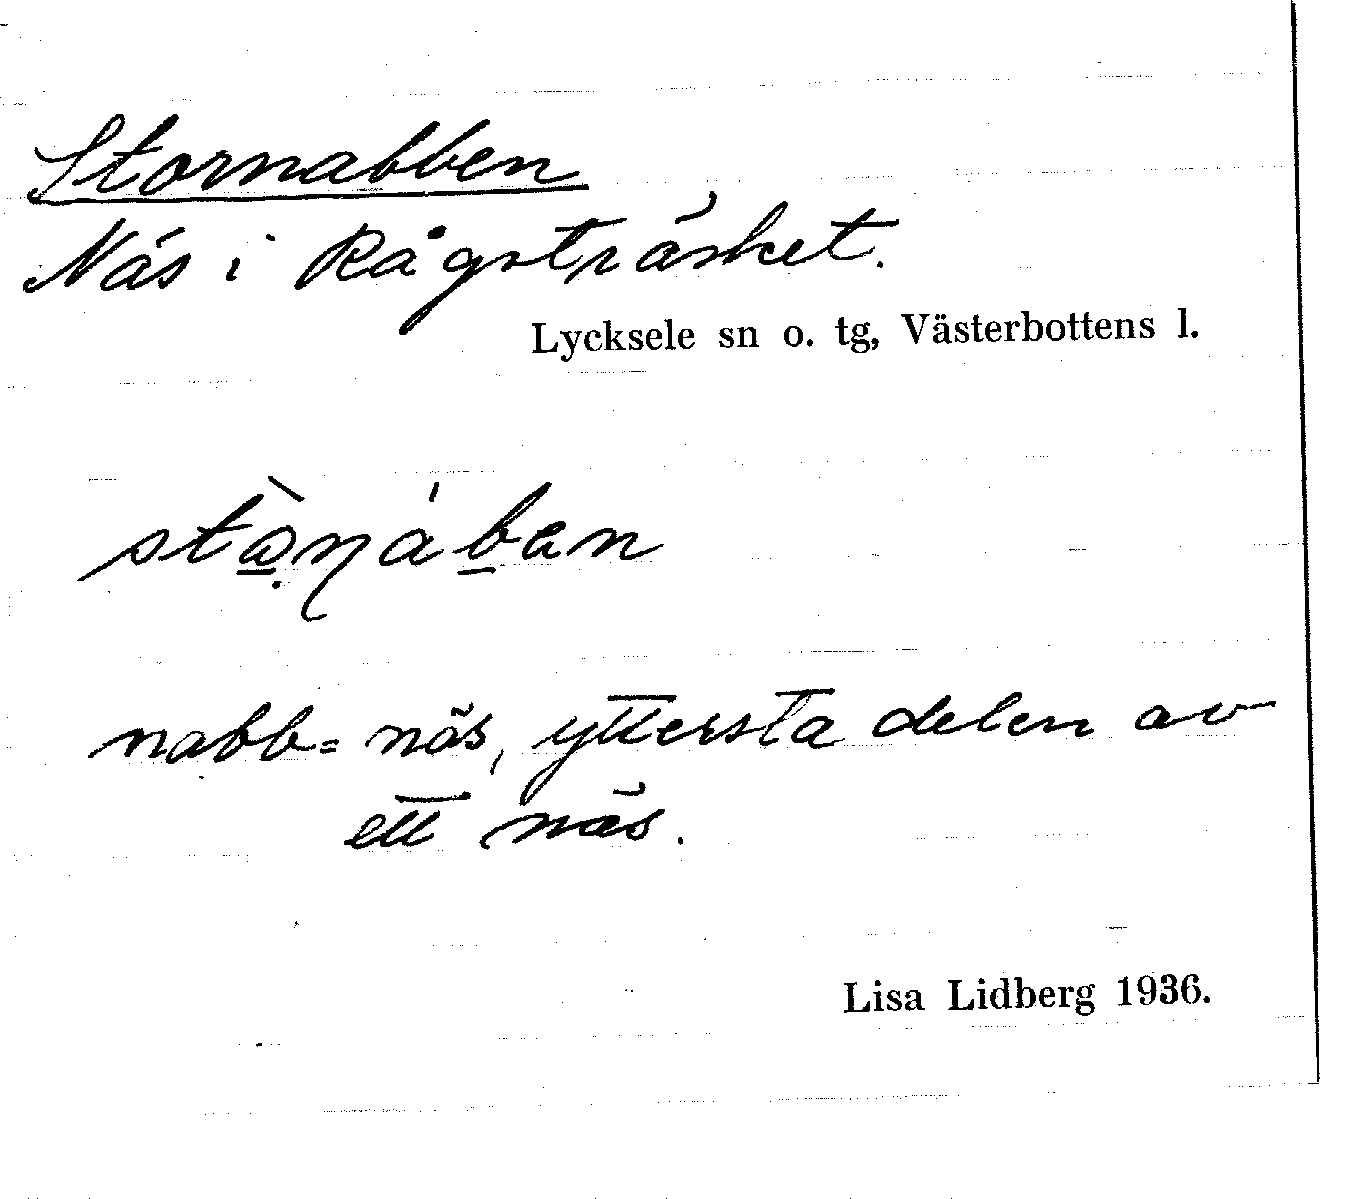 Stornabben
Näs i Rågsträsket.
Lycksele sn o. tg, Västerbottens l.
nabb = näs, yttersta delen av
ett näs.
Lisa Lidberg 1936.